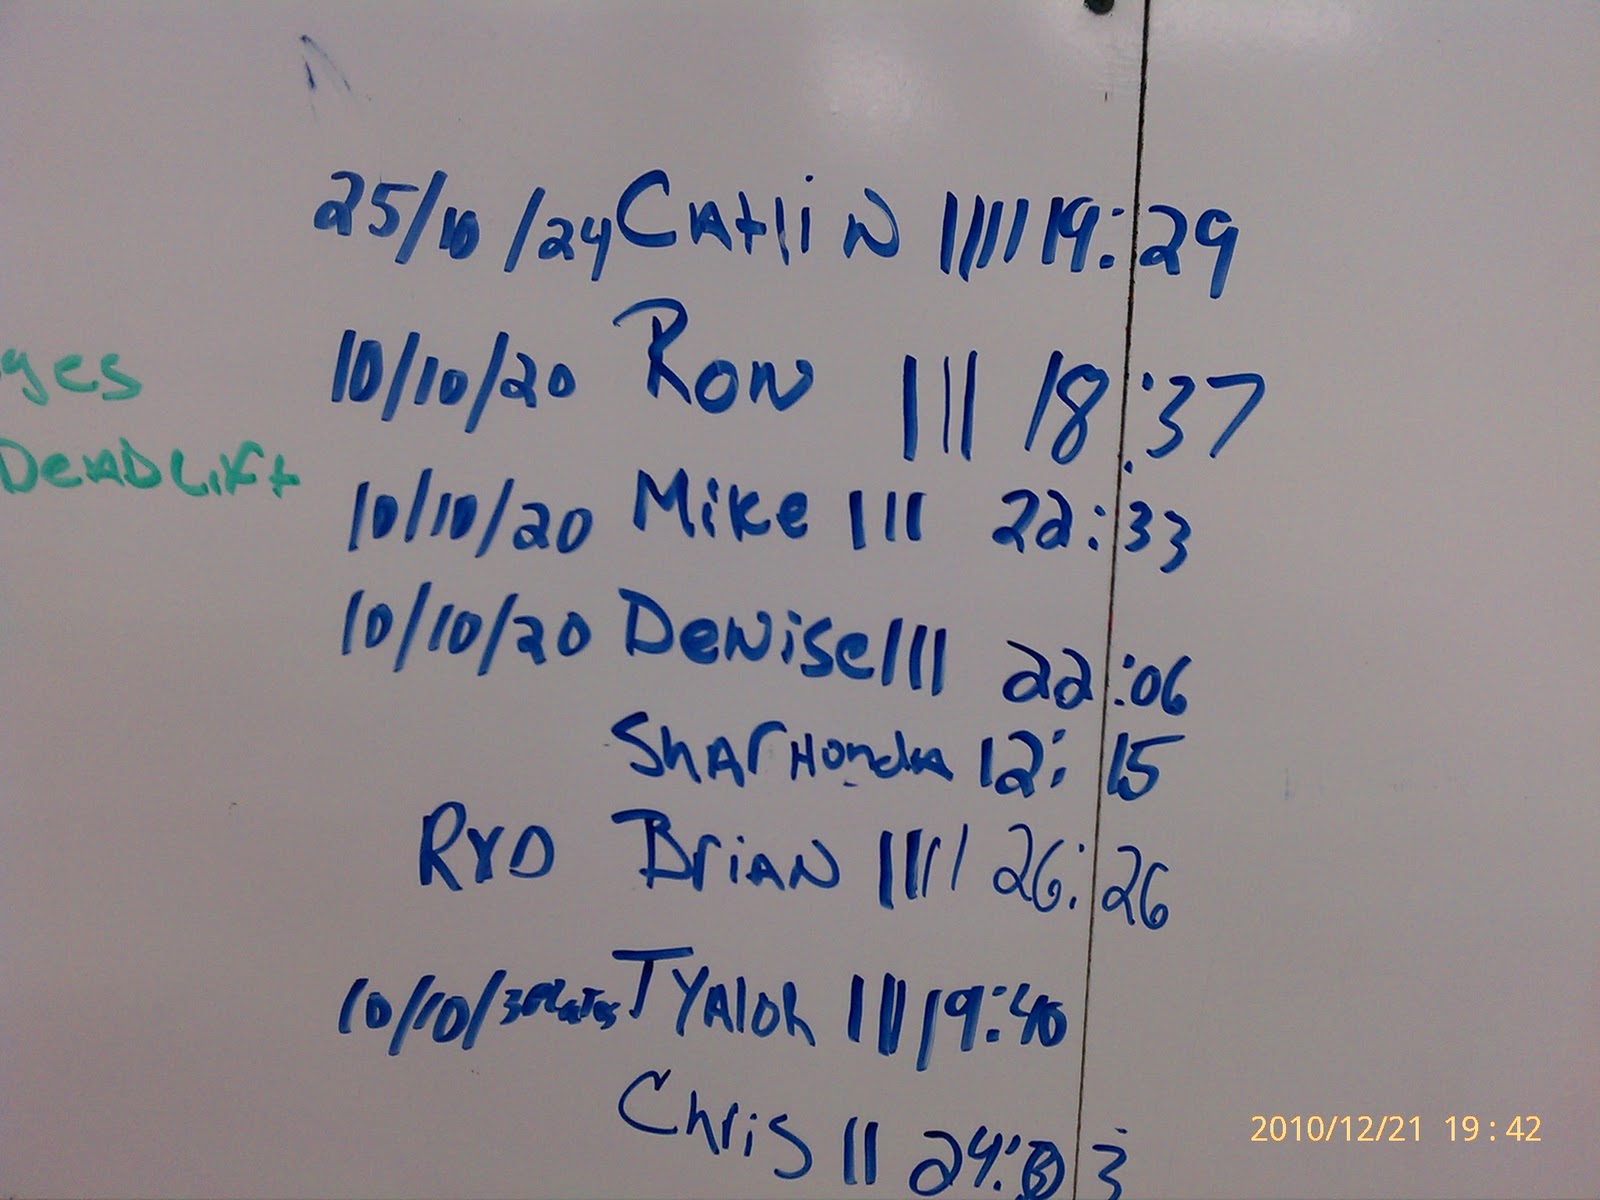 25/10/24 Catlin ||||| 19:29
10/10/20 Ron ||| 18:37
yes
DeadLift
10/10/20 Mike ||| 22:33
10/10/20 Denise ||| 22:06
Sharhonda 12:15
RXD Brian |||| 26:26
10/10/ Tyaloh ||| 19:40
Chris || 24:03
2010/12/21 19:42